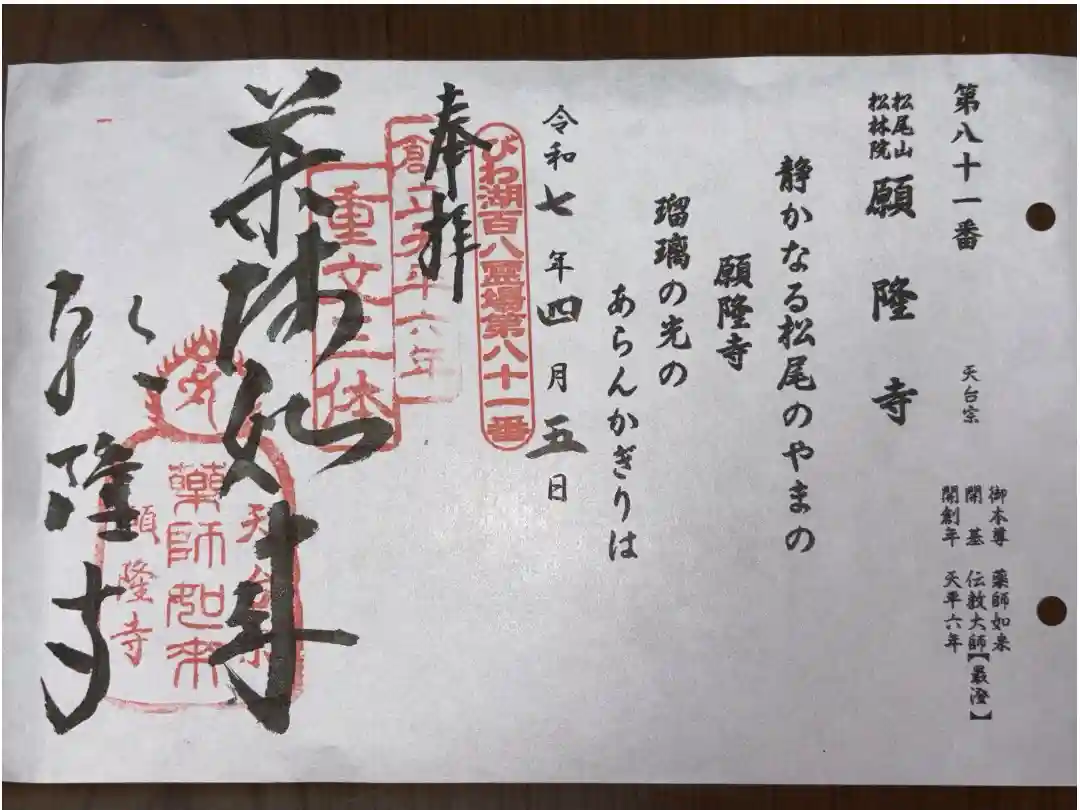 第八十一番
松尾山
松林院
願隆寺
天台宗
御本尊 薬師如来
開基 伝教大師【最澄】
開創年 天平六年
静かなる松尾のやまの
願隆寺
瑠璃の光の
あらんかぎりは
令和七年四月五日
びわ湖百八霊場第八十一番
奉拝
創立天平六年
重文三体
薬師如来
願隆寺
天台宗
薬師如来
願隆寺